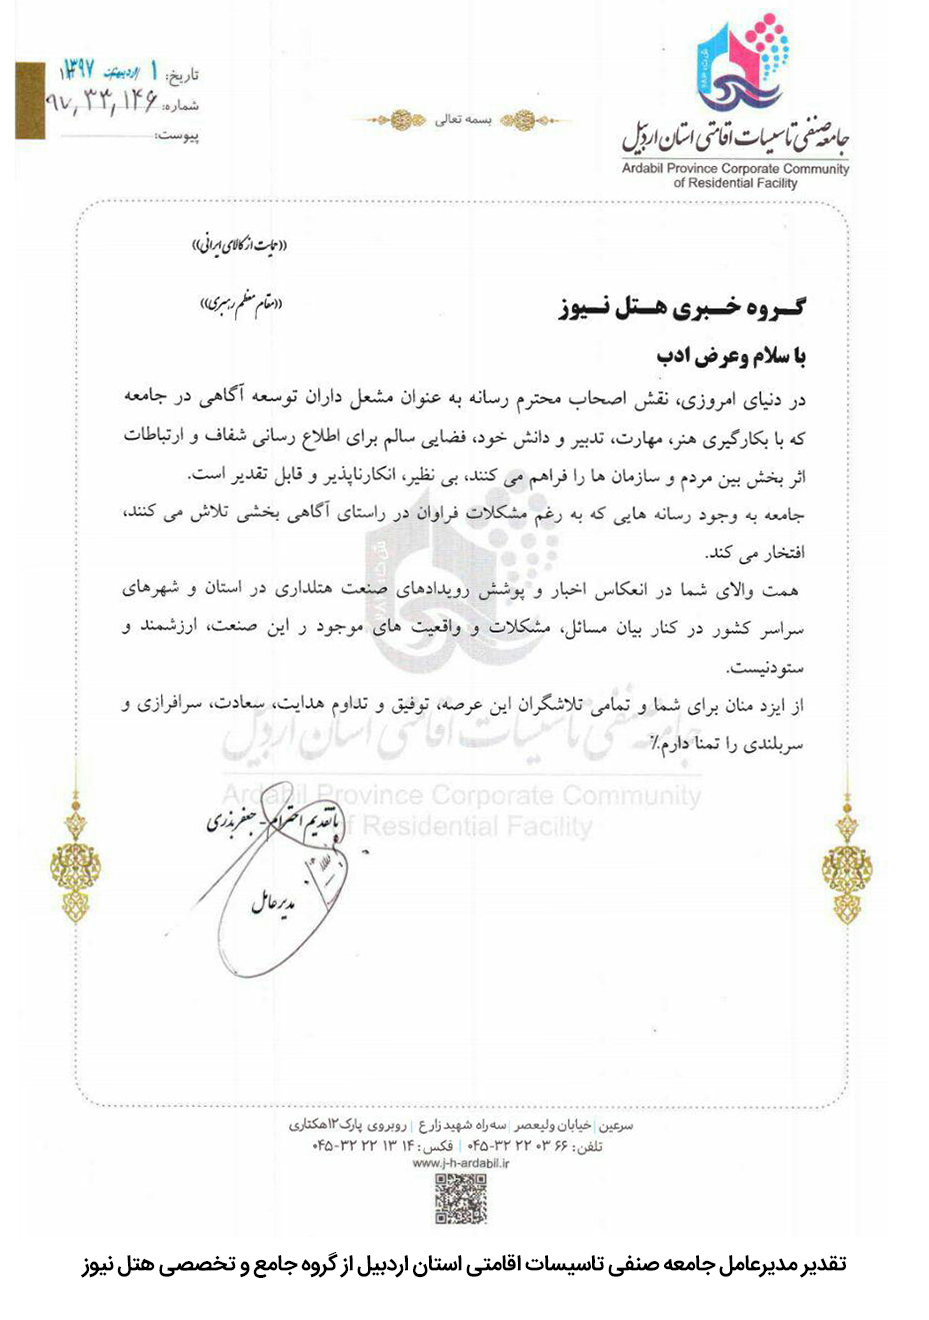 تاریخ: ۱ اردیبهشت ۱۳۹۷
شماره: ۹۷,۳۳,۱۴۶
پیوست:
بسمه تعالی
جامعه صنفی تاسیسات اقامتی استان اردبیل
Ardabil Province Corporate Community
of Residential Facility
((حمایت از کالای ایرانی))
((مقام معظم رهبری))
گروه خبری هتل نیوز
با سلام وعرض ادب
در دنیای امروزی، نقش اصحاب محترم رسانه به عنوان مشعل داران توسعه آگاهی در جامعه
که با بکارگیری هنر، مهارت، تدبیر و دانش خود، فضایی سالم برای اطلاع رسانی شفاف و ارتباطات
اثر بخش بین مردم و سازمان ها را فراهم می کنند، بی نظیر، انکارناپذیر و قابل تقدیر است.
جامعه به وجود رسانه هایی که به رغم مشکلات فراوان در راستای آگاهی بخشی تلاش می کنند،
افتخار می کند.
همت والای شما در انعکاس اخبار و پوشش رویدادهای صنعت هتلداری در استان و شهرهای
سراسر کشور در کنار بیان مسائل، مشکلات و واقعیت های موجود ر این صنعت، ارزشمند و
ستودنیست.
از ایزد منان برای شما و تمامی تلاشگران این عرصه، توفیق و تداوم هدایت، سعادت، سرافرازی و
سربلندی را تمنا دارم٪
جامعه صنفی تاسیسات اقامتی استان اردبیل
Ardabil Province Corporate Community
of Residential Facility
با تقدیم احترام - جعفر بذری
مدیرعامل
سرعین | خیابان ولیعصر | سه راه شهید زارع | روبروی پارک ۱۲ هکتاری
تلفن: ۶۶ ۰۳ ۲۲ ۳۲-۰۴۵ | فکس: ۱۴ ۱۳ ۲۲ ۳۲-۰۴۵
www.j-h-ardabil.ir
تقدیر مدیرعامل جامعه صنفی تاسیسات اقامتی استان اردبیل از گروه جامع و تخصصی هتل نیوز